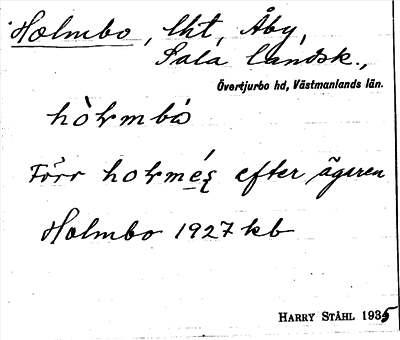 Holmbo, lht, Åby,
Sala landsk.,
Övertjurbo hd, Västmanlands län.
Förr efter ägaren
Holmbo 1927 kb
HARRY STÅHL 1935